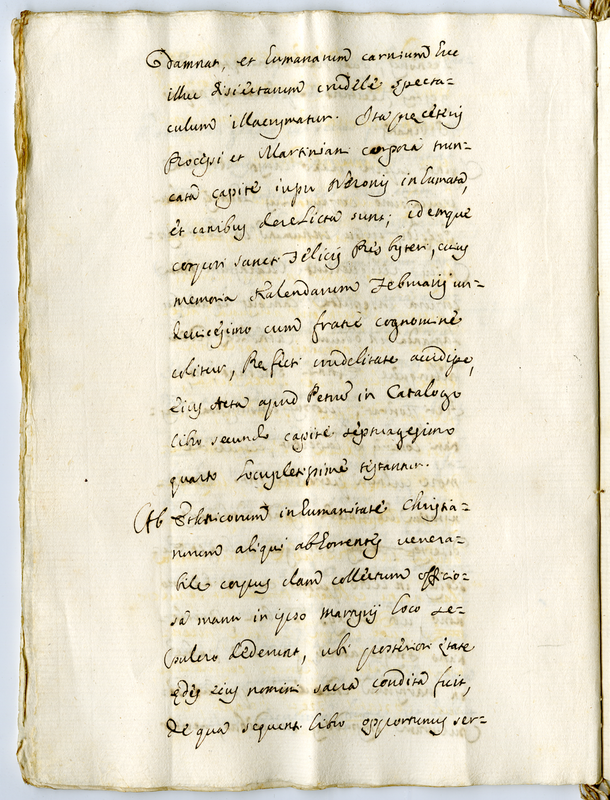 damnat, et humanarum carnium huc
illuc disiectarum crudele specta-
culum illacrymatur. Ita præcteris
Processi et Martiniani corpora trun-
cata capite iussu Neronis inhumata,
et canibus derelicta sunt; idemque
corpori sancti Felicis Presbyteri, cuius
memoria Kalendarum Februarij un-
devicesimo cum fratre cognomine
colitur, Præfecti crudelitate accidisse,
eius Acta apud Petrum in Catalogo
libro secundo capite septuagesimo
quarto locupletissime testantur.
Ab Ethnicorum inhumanitate Christia-
norum aliqui abhorrentes venera-
bile corpus clam collectum officio-
sa manu in ipso Martyrij loco se-
pulcro dederunt, ubi posteriori ętate
ędes eius nomini sacra condita fuit,
de qua sequenti libro opportunus ser-